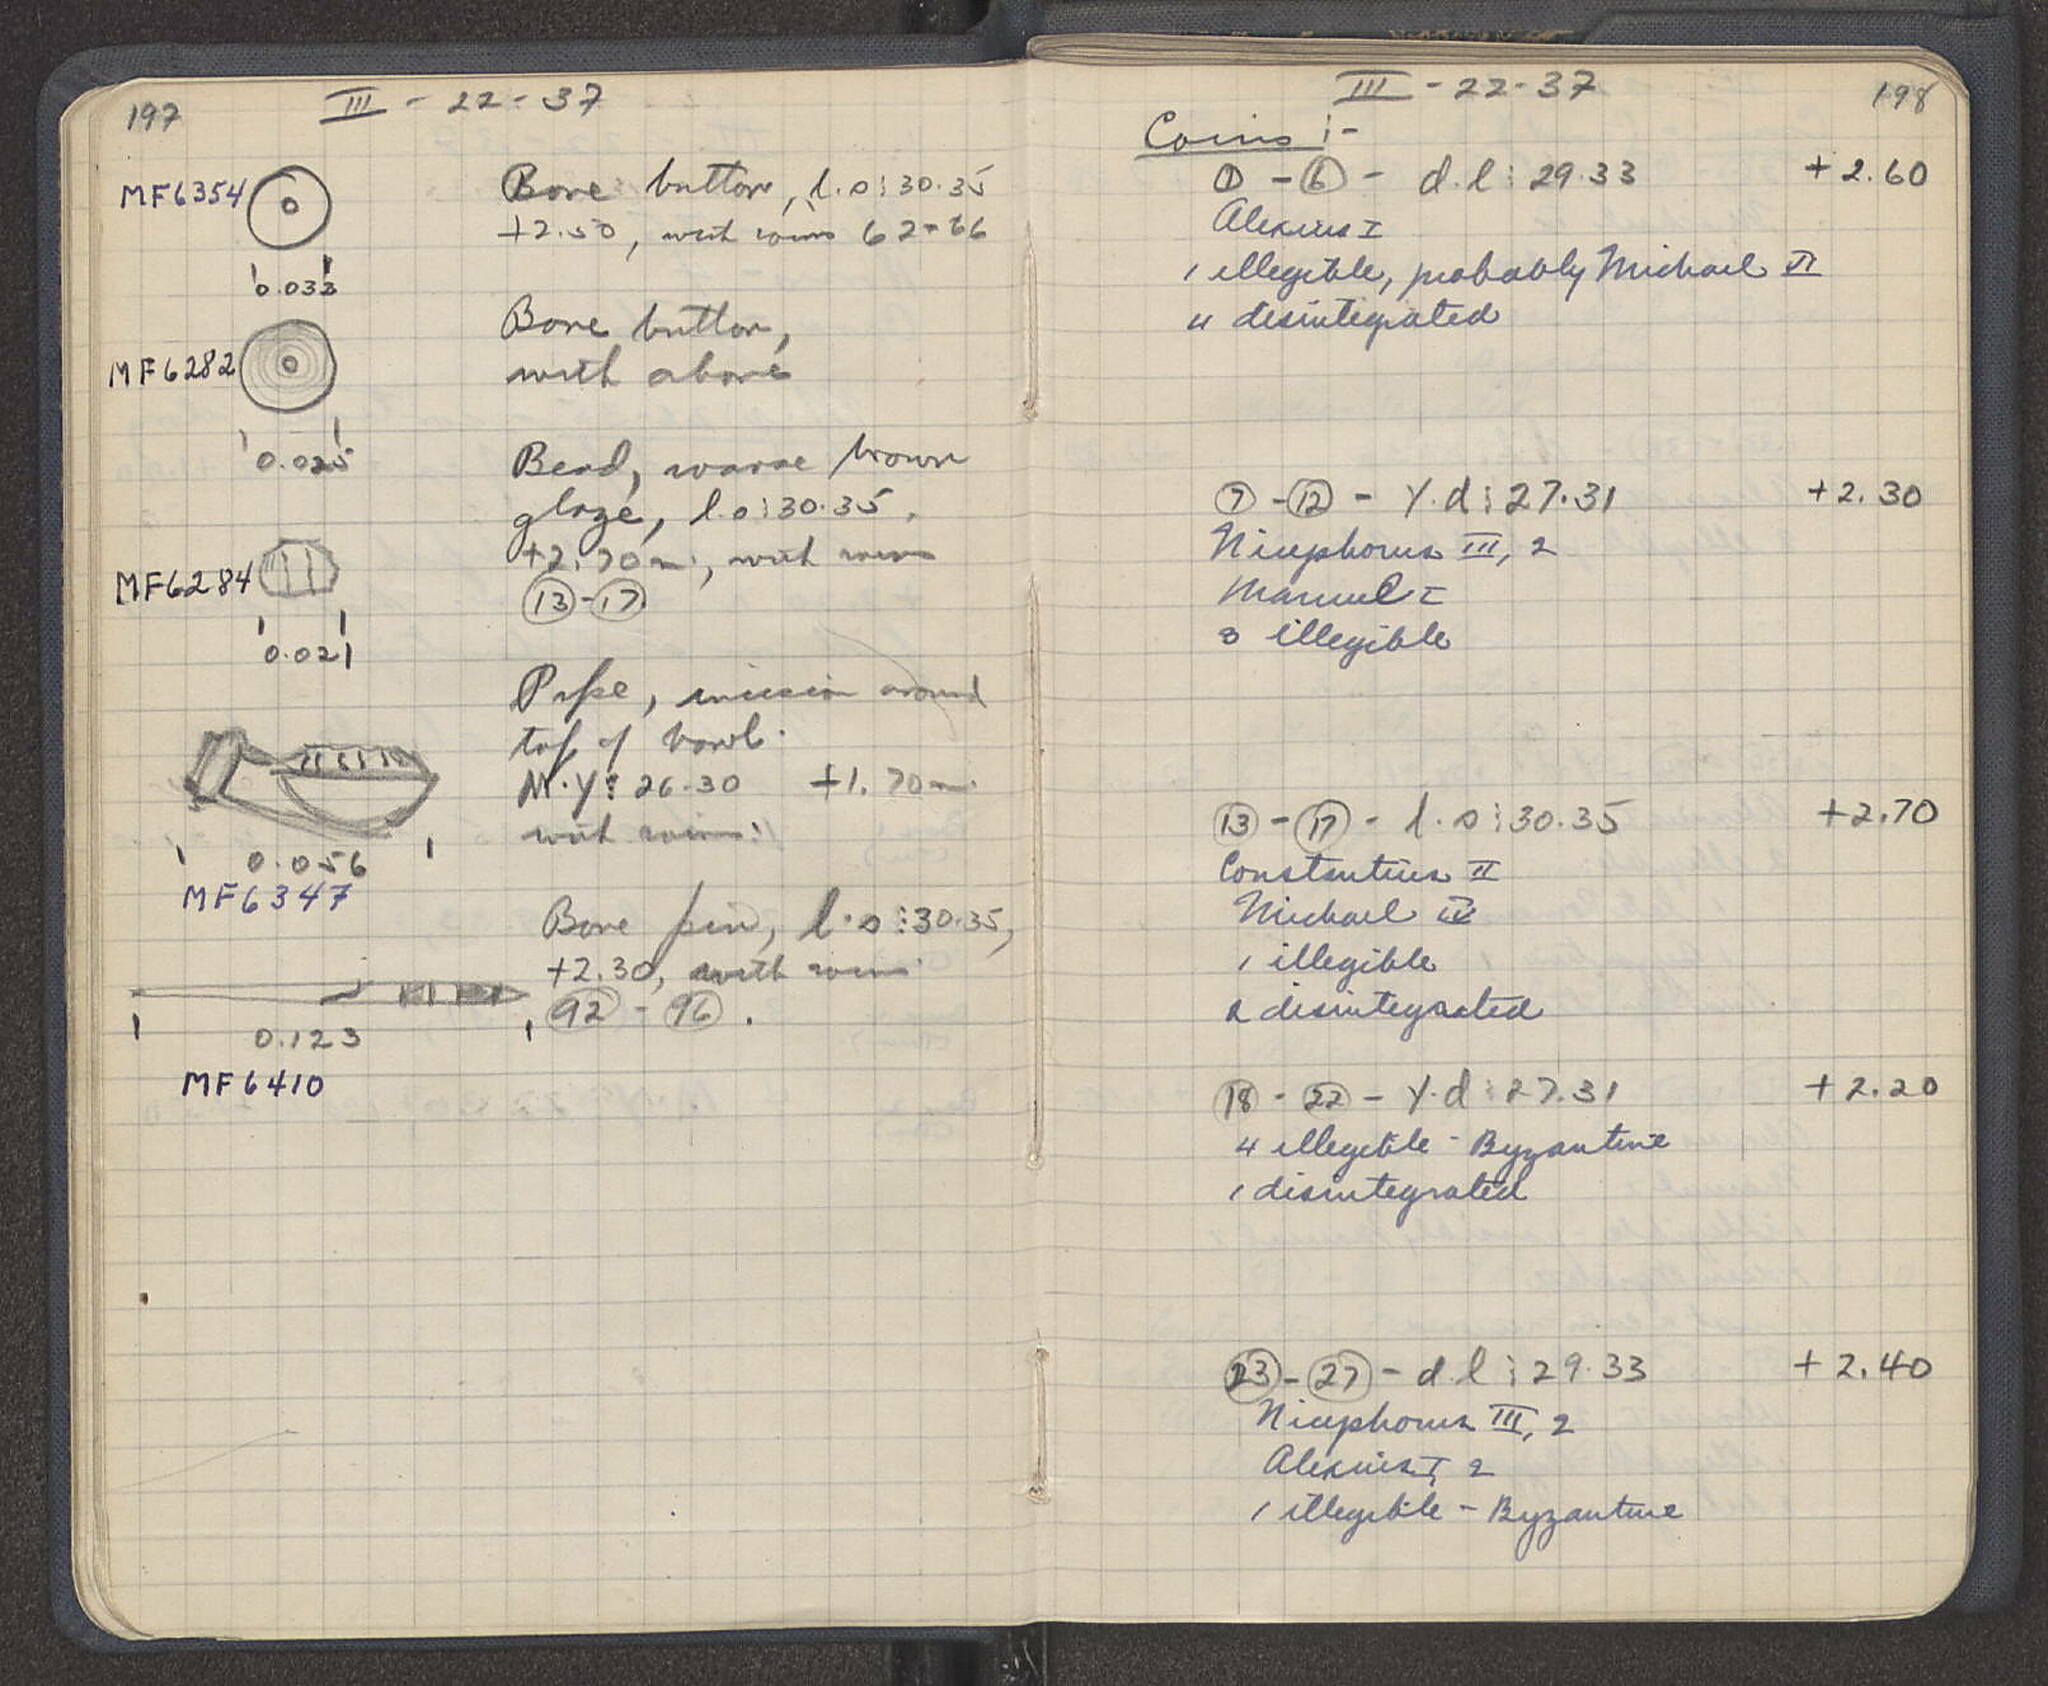 197
III - 22 - 37
MF6354
Bone button, l.o⁝30.35
+2.50, with coins 62-66
0.033
MF6282
Bone button,
with above
0.025
Bead, coarse brown
glaze, l.o⁝30.35,
+2.70m, with coins
13-17
MF6284
0.021
Pipe, incision around
top of bowl.
M.Y⁝26.30 +1.70m
with coins
0.056
MF6347
Bone pin, l.o⁝30.35,
+2.30, with coins
92 - 96.
0.123
MF6410
III - 22-37
198
Coins :-
1 - 6 - d.l⁝29.33 +2.60
Alexius I
1 illegible, probably Michael
4 disintegrated
7 - 12 - Y.d⁝27.31 +2.30
Nicephorus III, 2
Manuel I
3 illegible
13 - 17 - l.o⁝30.35 +2.70
Constantius II
Michael IV
1 illegible
2 disintegrated
18 - 22 - Y.d⁝27.31 +2.20
4 illegible - Byzantine
1 disintegrated
23 - 27 - d.l⁝29.33 +2.40
Nicephorus III, 2
Alexius I, 2
1 illegible - Byzantine